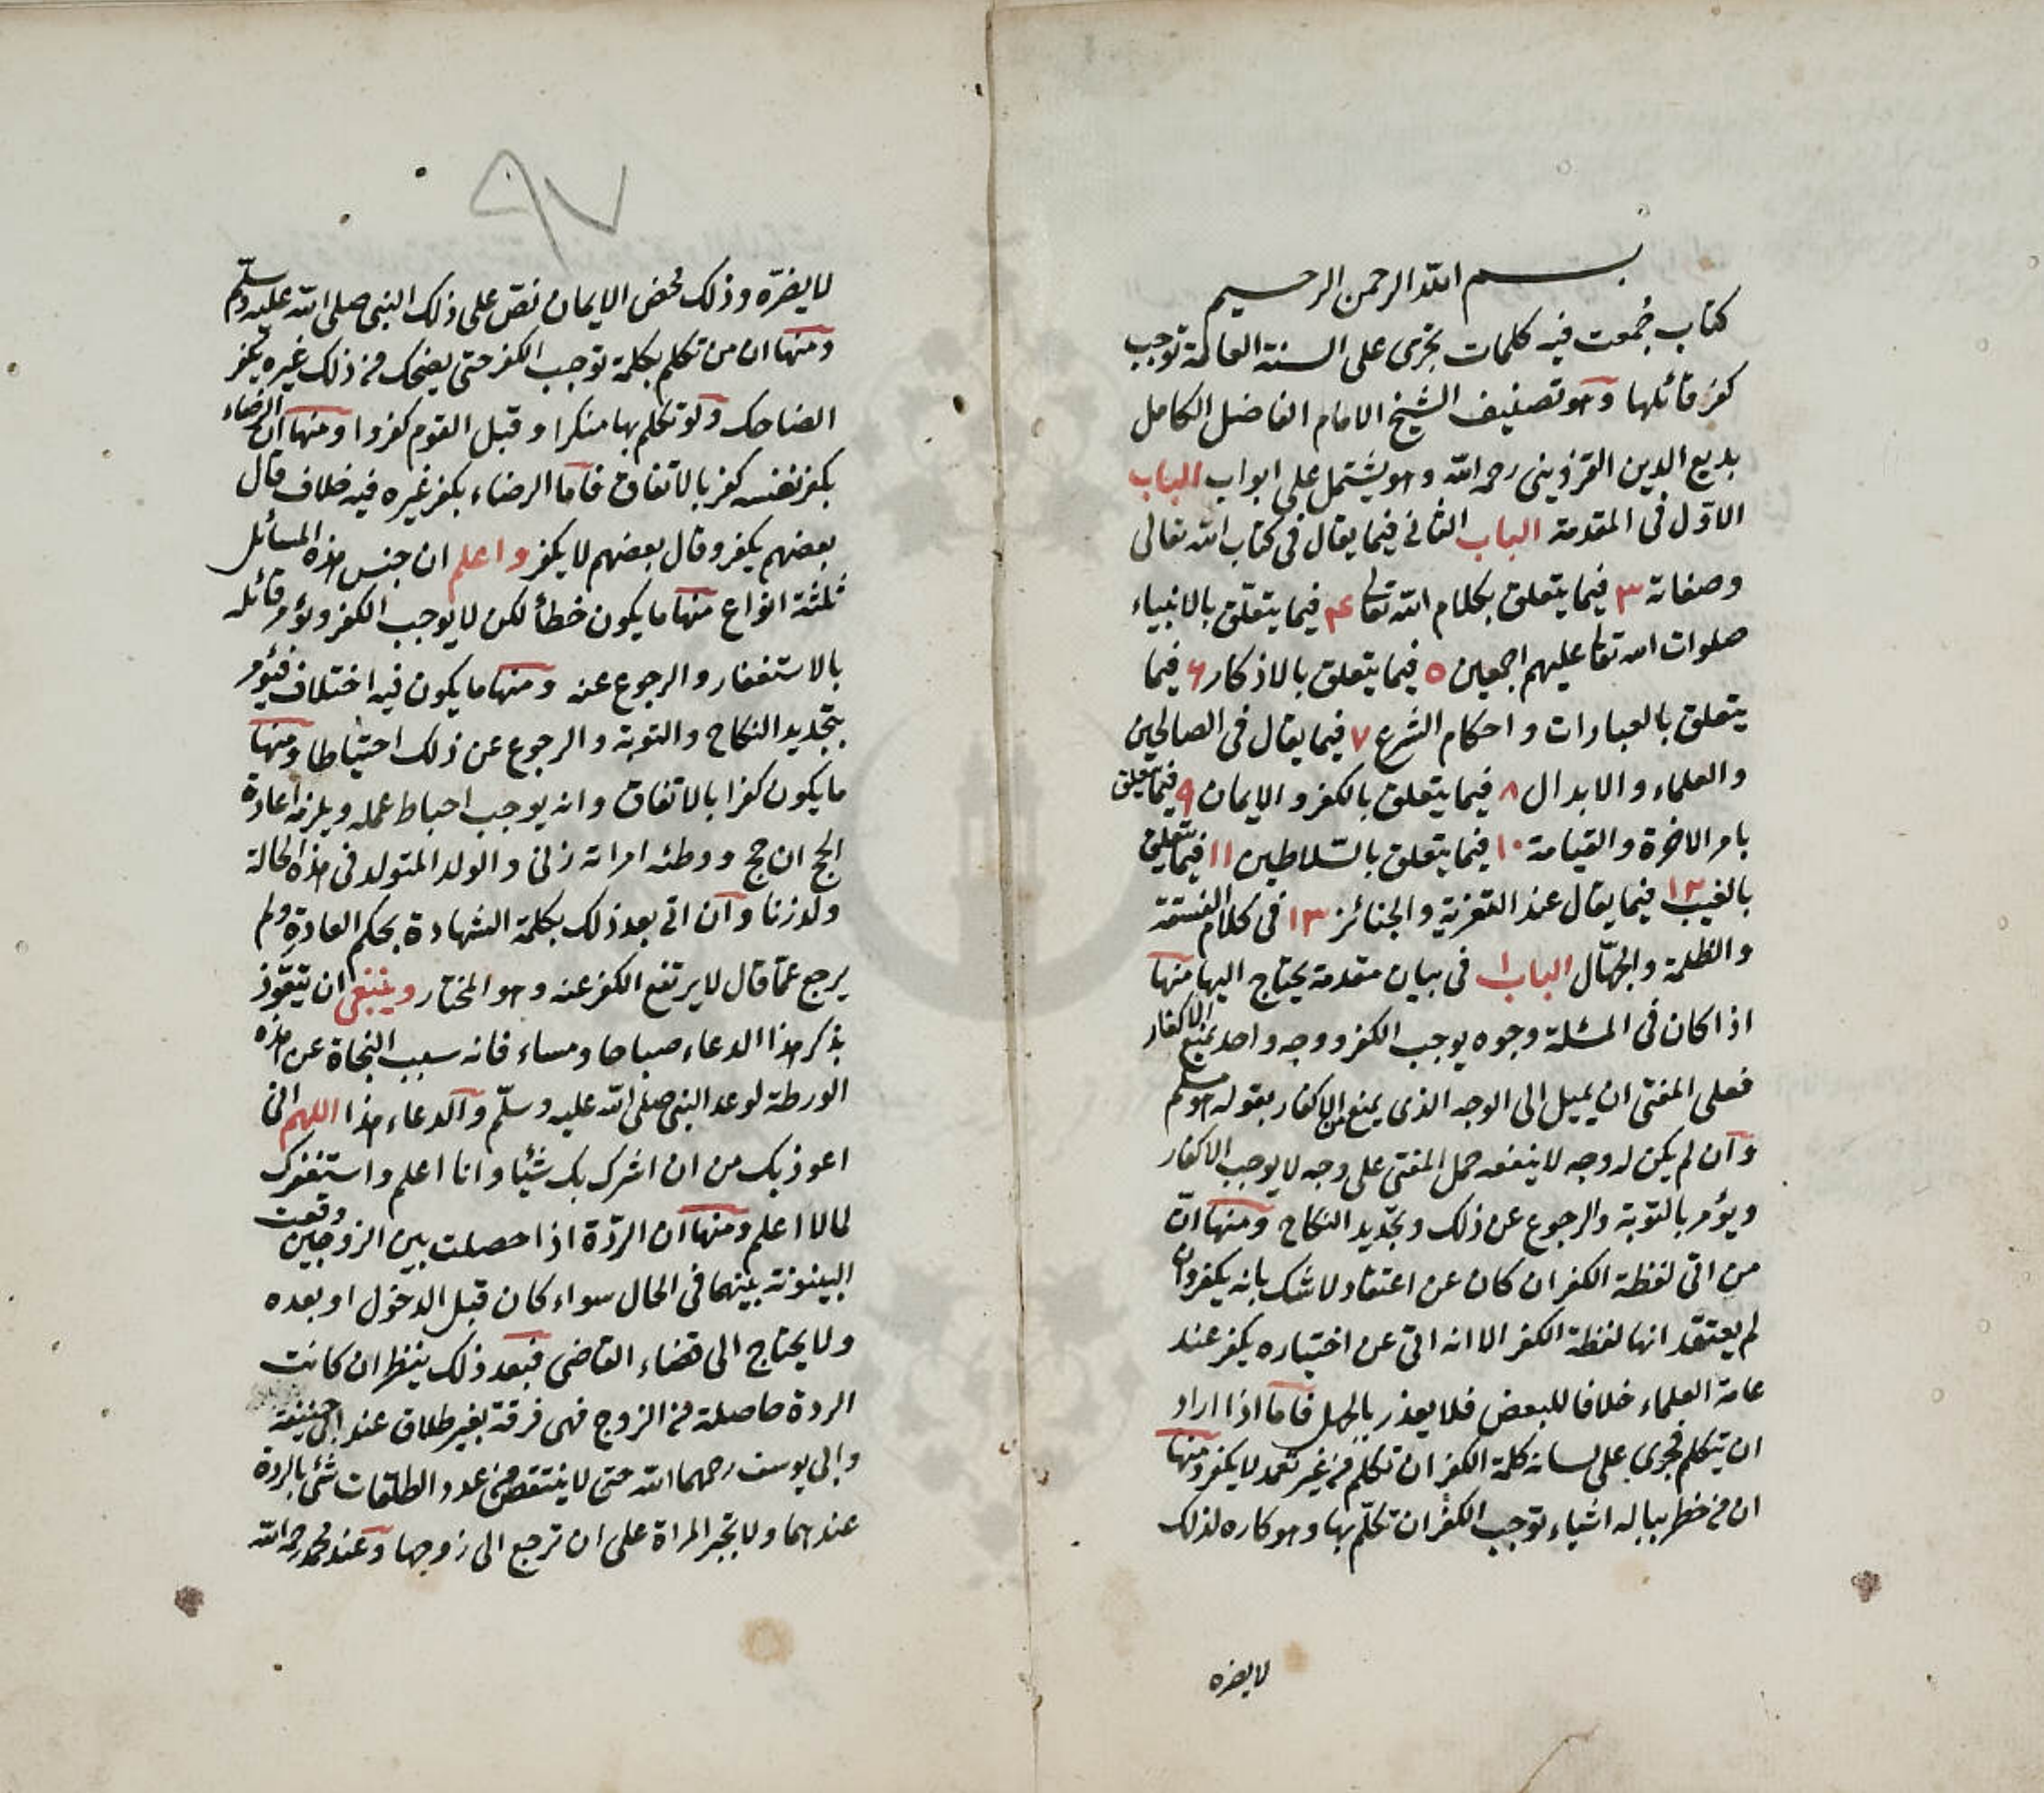 بسم الله الرحمن الرحيم
كتاب جُمعت فيه كلمات تجرى على السنة العامة توجب
كفر قائلها وهو تصنيف الشيخ الامام الفاضل الكامل
بديع الدين القزوينى رحمه الله وهو يشتمل على ابواب الباب
الاوّل فى المقدمة الباب الثانى فيما يقال فى كتاب الله تعالى
وصفاته ٣ فيما يتعلق بكلام الله تعا ۴ فيما يتعلّق بالانبياء
صلوات الله تعا عليهم اجمعين ٥ فيما يتعلق بالاذكار ۶ فيما
يتعلق بالعبارات واحكام الشرع ٧ فيما يقال فى الصالحين
والعلماء والابدال ٨ فيما يتعلق بالكفر والايمان ٩ فيما يتعلق
بامر الآخرة والقيامة ١٠ فيما يتعلق بالسّلاطين ١١ فيما يتعلق
بالغيب ١٢ فيما يقال عند التعزية والجنائز ١٣ فى كلام الفسقة
والظلمة والجهّال الباب ١ فى بيان مقدمة يحتاج اليها منها
اذا كان فى المسئلة وجوه يوجب الكفر ووجه واحد يمنع الاكفار
فعلى المفتى ان يميل الى الوجه الذى يمنع من الاكفار بقوله هو مسلم
وان لم يكن له وجه لا ينفعه حمل المفتى على وجه لا يوجب الاكفار
ويؤمر بالتوبة والرجوع عن ذلك وتجديد النكاح ومنها انّ
من اتى لفظة الكفر ان كان عن اعتقاد لا شك بانه يكفر وان
لم يعتقد انها لفظة الكفر الا انه اتى عن اختياره يكفر عند
عامة العلماء خلافا للبعض فلا يعذر بالجهل فاما اذا اراد
ان يتكلم فجرى على لسانه كلمة الكفر ان تكلم من غير تعمد لا يكفر ومنها
ان من خطر بباله اشياء توجب الكفر ان تكلّم بها وهو كاره لذلك
لا يضره
٩٧
لا يضرّه وذلك محض الايمان نصّ على ذلك النبى صلى الله عليه وسلّم
ومنها ان من تكلم بكلمة توجب الكفر حتى يضحك من ذلك غيره يكفر
الضاحك ولو تكلم بها منكرا وقبل القوم كفروا ومنها ان الرضاء
بكفر نفسه كفر بالاتفاق فاما الرضاء بكفر غيره فيه خلاف قال
بعضهم يكفر وقال بعضهم لا يكفر واعلم ان جنس هذه المسائل
ثلثة انواع منها ما يكون خطأ لكن لا يوجب الكفر ويؤمر قائله
بالاستغفار والرجوع عنه ومنها ما يكون فيه اختلاف فيؤمر
بتجديد النكاح والتوبة والرجوع عن ذلك احتياطا ومنها
ما يكون كفرا بالاتفاق وانه يوجب احباط عمله ويلزمه اعادة
الحج ان حج ووطئه امراته زنى والولد المتولد فى هذه الحالة
ولد زنا وان اتى بعد ذلك بكلمة الشهادة بحكم العادة ولم
يرجع عمّا قال لا يرتفع الكفر عنه وهو المختار وينبغى ان يتعوّذ
بذكر هذا الدعاء صباحا ومساء فانه سبب النجاة عن هذه
الورطة لوعد النبى صلى الله عليه وسلّم والدعاء هذا اللهم انى
اعوذ بك من ان اشرك بك شيئا وانا اعلم واستغفرك
لما لا اعلم ومنها ان الردّة اذا حصلت بين الزوجين وقعت
البينونة بينهما فى الحال سواء كان قبل الدخول او بعده
ولا يحتاج الى قضاء القاضى فبعد ذلك ينظر ان كانت
الردة حاصلة من الزوج فهى فرقة بغير طلاق عند ابى حنيفة
وابى يوسف رحمهما الله حتى لا ينتقص من عدد الطلقات شئ بالردة
عندهما ولا تجبر المراة على ان ترجع الى زوجها وعند محمد رحمه الله